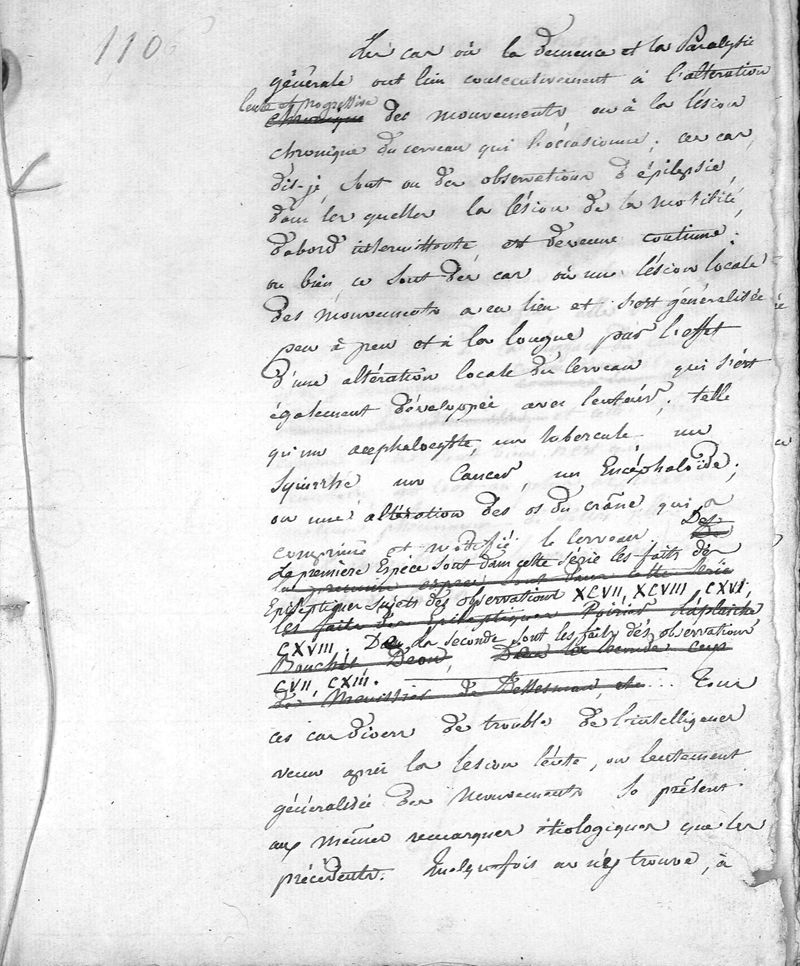 110
Les cas où la Demence et la Paralysie
générale ont lieu consecutivement à l'altération
lente et progressive
chronique des mouvements ou à la lésion
chronique du cerveau qui l'occasionne; ces cas,
dis-je, sont ou des observations d'épilepsie,
dans les quelles la lésion de la motilité,
d'abord intermittente est devenue continue;
ou bien ce sont des cas où une lésion locale
des mouvements a eu lieu et s'est généralisée
peu à peu et à la longue par l'effet
d'une altération locale du Cerveau qui s'est
également développée avec lenteur, telle
qu'un acephalocyste, un tubercule un
Squirrhe un Cancer, un Encéphaloïde;
ou une altération des os du crâne qui a
comprimé et modifié le cerveau. De
La premiere Espèce sont dans cette série les faits des
la premiere espece sont dans cette serie
Epileptiques sujets des observations XCVII, XCVIII, CXVI,
les faits des Epileptiques
CXVIII. De la seconde sont les faits des observations
De la seconde ceux
CVII, CXIII.
de etc... Tous
ces cas divers de trouble de l'intelligence
venu après la lésion lente, ou lentement
généralisée des mouvements se prêtent
aux mêmes remarques étiologiques que les
précédents. Quelquefois on n'y trouve, à